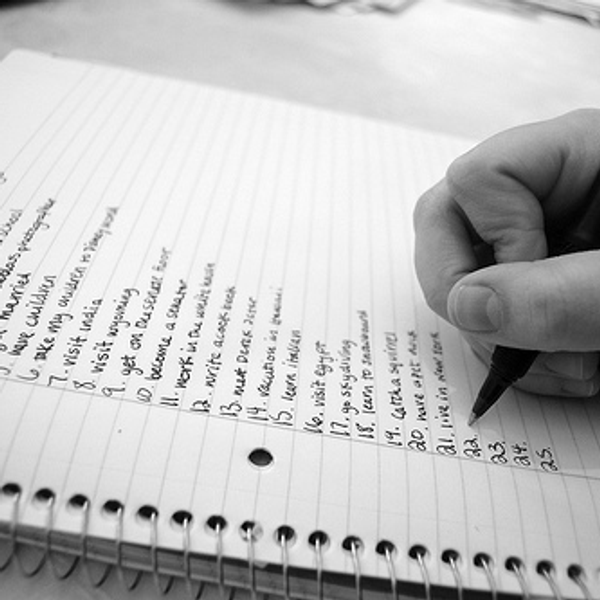 school
married
have children
6. take my children to Disney world
7. visit India
8. visit wyoming
9. get on the senate floor
10. become a senator
11. work in the white house
12. write a cook book
13. meet Derek Jeter
14. vacation in
15. learn italian
16. visit egypt
17. go skydiving
18. learn to snowboard
19. catch a squirrel
20. have a pet duck
21. live in New York
22.
23.
24.
25.